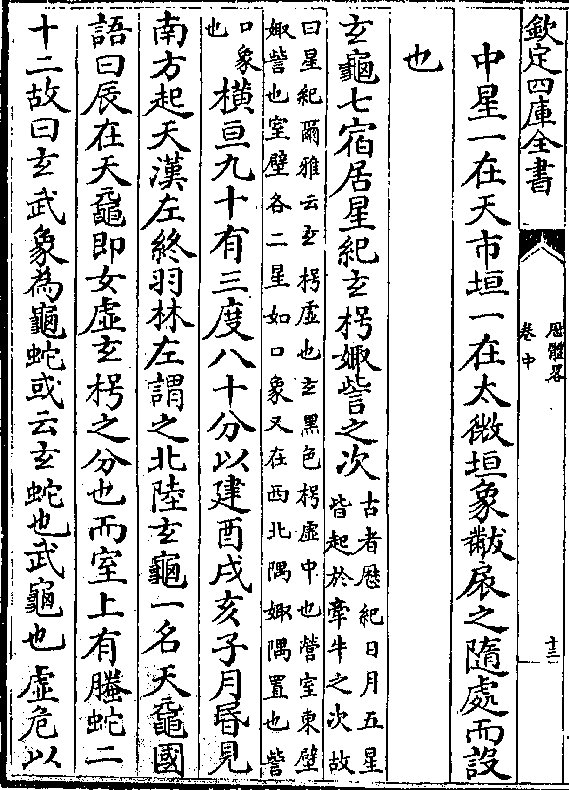 欽定四庫全書
厯體略
卷中
十三
中星一在天市垣一在太微垣象黻扆之隨處而設
也
玄龜七宿居星紀玄枵娵訾之次
古者厯紀日月五星
皆起於牽牛之次故
曰星紀爾雅云玄枵虛也玄黑色枵虛中也營室東壁
娵訾也室壁各二星如口象又在西北隅娵隅置也訾
口象
也
橫亘九十有三度八十分以建酉戌亥子月昏見
南方起天漢左終羽林左謂之北陸玄龜一名天黿國
語曰辰在天黿即女虛玄枵之分也而室上有螣蛇二
十二故曰玄武象為龜蛇或云玄蛇也武龜也虛危以